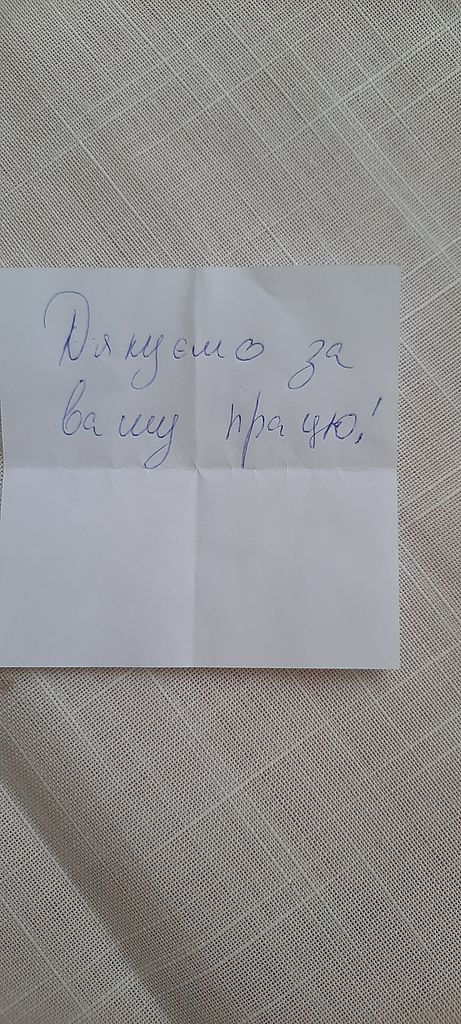 Дякуємо за
вашу працю!